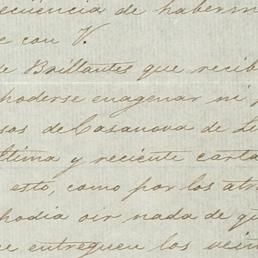 ecüencia de haberm
e con V.
de Brillantes que recib
poderse enagenar ni p
sas de Casanova de
ltima y reciente carta
esto, como por los atr
podia oir nada de qu
se entreguen los vein